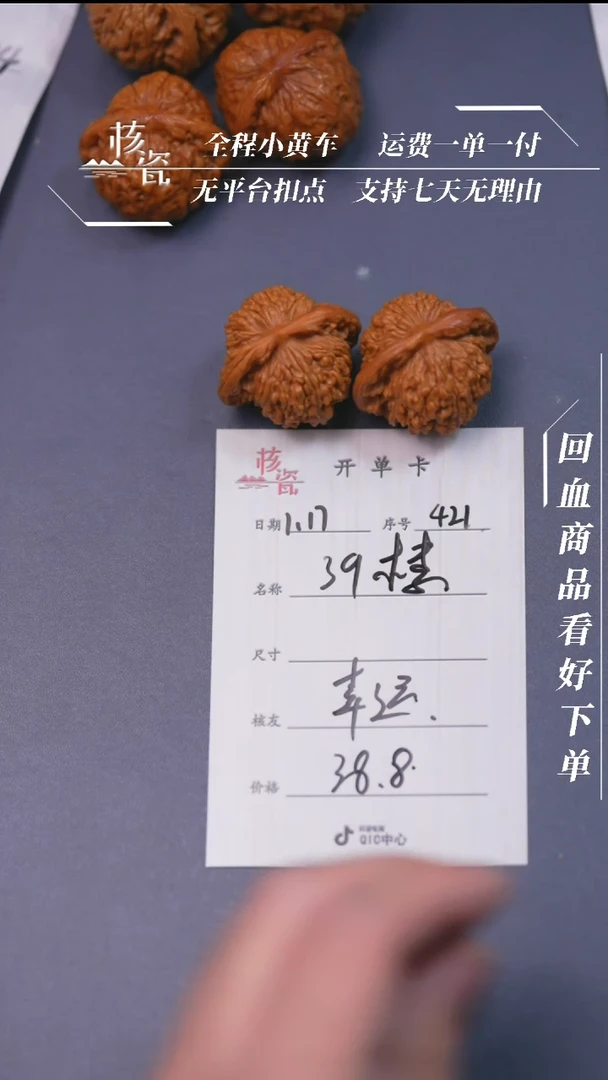 核瓷
全程小黄车 运费一单一付
无平台扣点 支持七天无理由
回血商品看好下单
核瓷 开单卡
日期 1.17 序号 421
名称 39楼
尺寸
核友 幸运.
价格 38.8
QIC中心